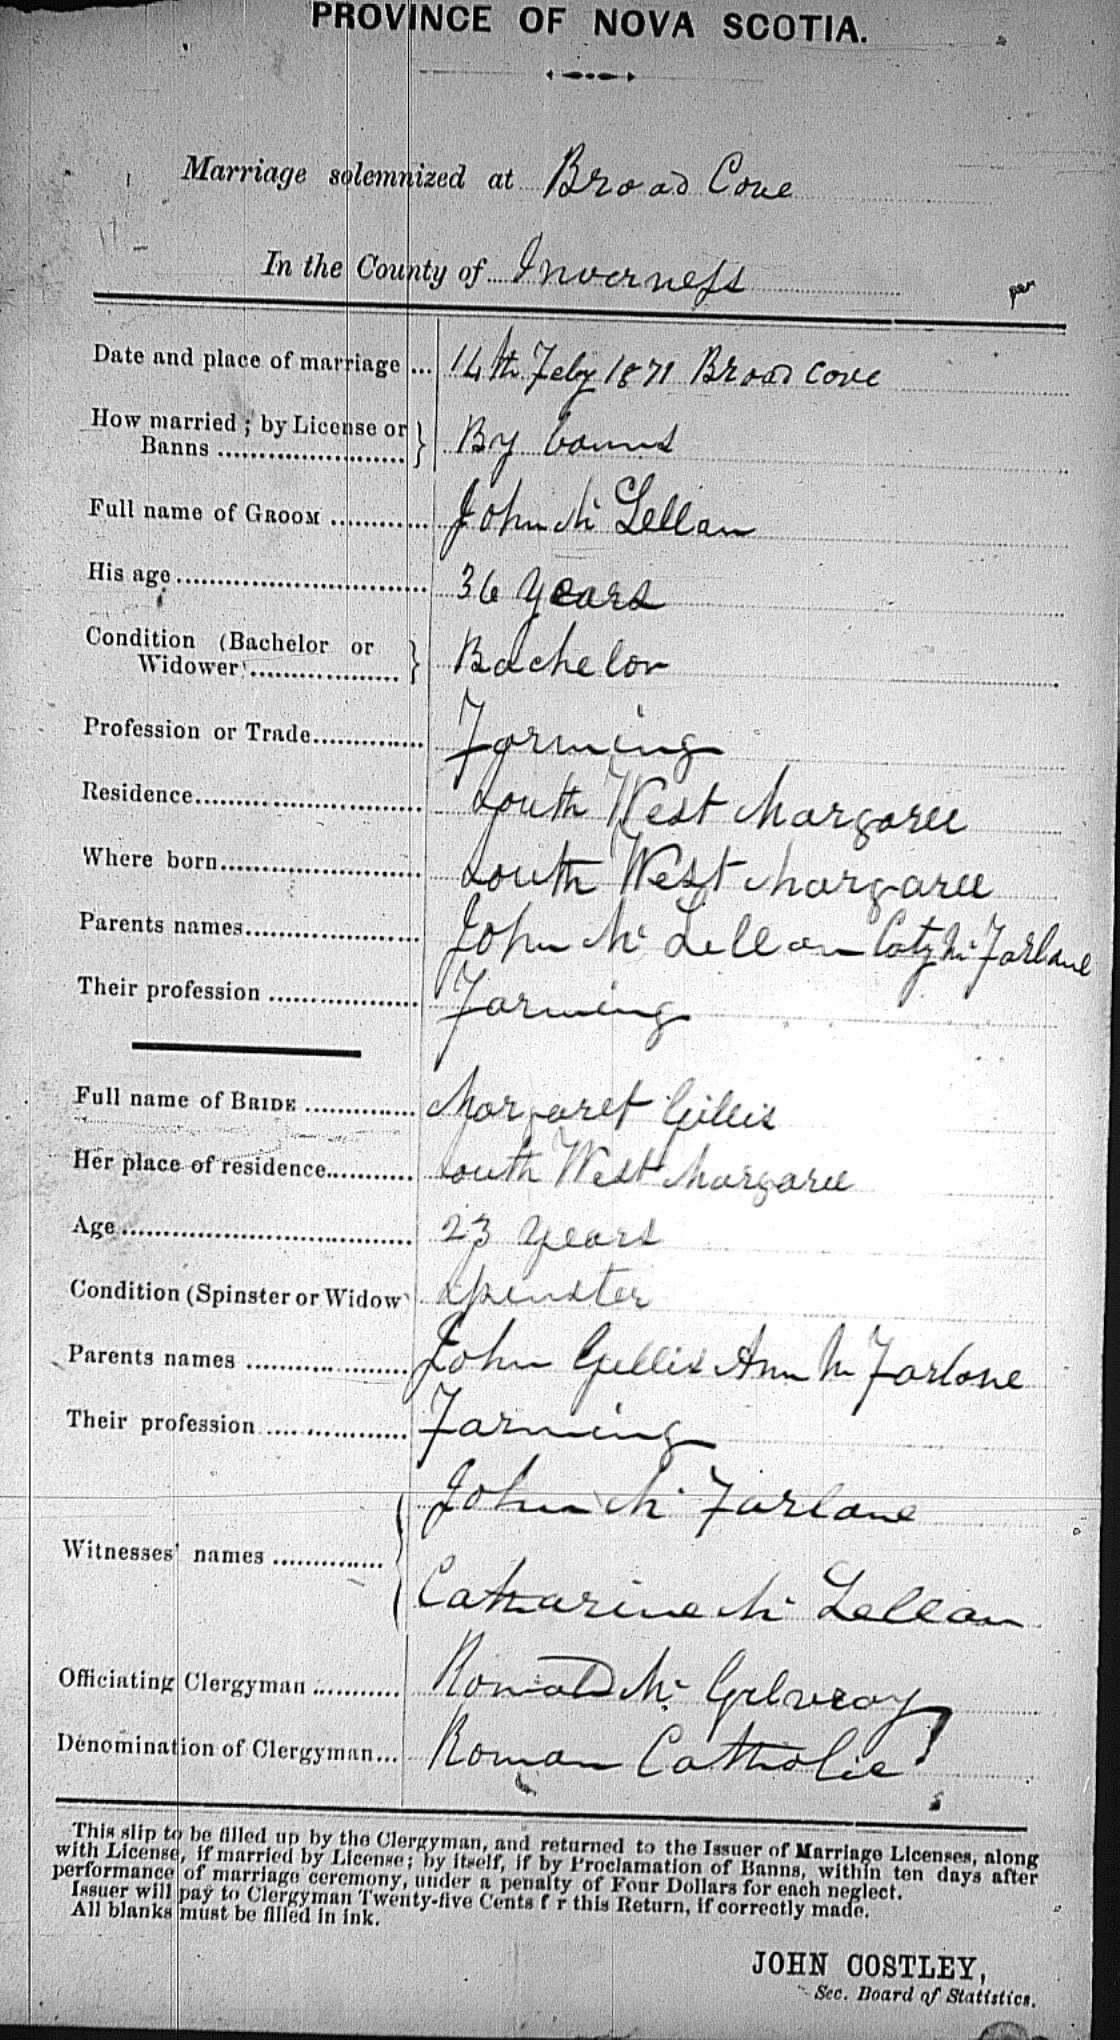 PROVINCE OF NOVA SCOTIA.
Marriage solemnized at Broad Cove
In the County of Inverness
per
Date and place of marriage ... 14th Feby 1871 Broad Cove
How married ; by License or Banns } By banns
Full name of GROOM John Mc Lellan
His age 36 years
Condition (Bachelor or Widower) } Bachelor
Profession or Trade Farming
Residence South West Margaree
Where born South West Margaree
Parents names John Mc Lellan Caty Mc Farlane
Their profession Farming
Full name of BRIDE Margaret Gillis
Her place of residence South West Margaree
Age 23 years
Condition (Spinster or Widow) Spinster
Parents names John Gillis Ann Mc Farlane
Their profession Farming
Witnesses' names { John Mc Farlane
Catharine Mc Lellan
Officiating Clergyman Ronald Mc Gilvray
Denomination of Clergyman... Roman Catholic
This slip to be filled up by the Clergyman, and returned to the Issuer of Marriage Licenses, along
with License, if married by License; by itself, if by Proclamation of Banns, within ten days after
performance of marriage ceremony, under a penalty of Four Dollars for each neglect.
Issuer will pay to Clergyman Twenty-five Cents f r this Return, if correctly made.
All blanks must be filled in ink.
JOHN COSTLEY,
Sec. Board of Statistics.